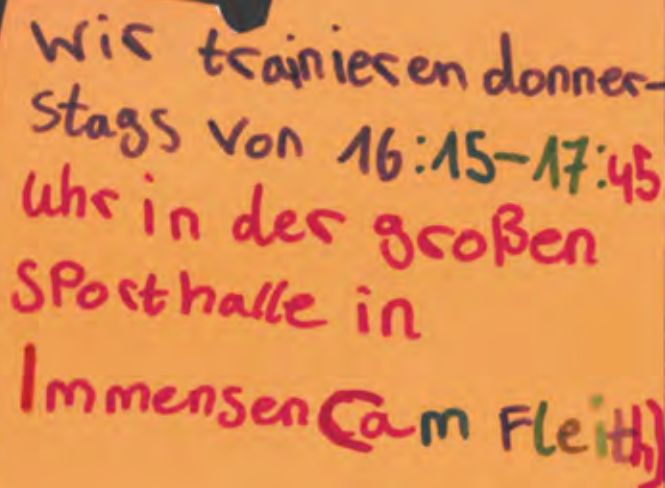 Wir trainieren donner-
stags von 16:15-17:45
Uhr in der großen
Sporthalle in
Immensen (am Fleith)